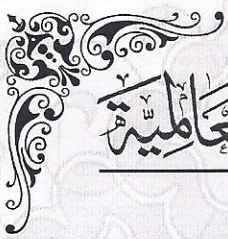 عَالمِيَّة